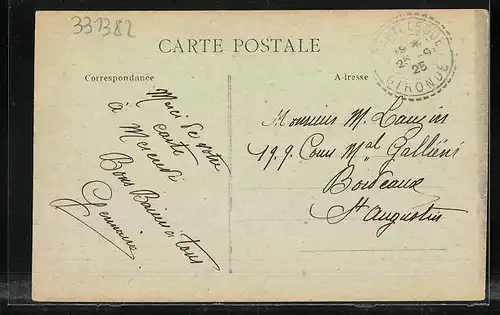 331382
CARTE POSTALE
Correspondance
Adresse
GIRONDE
25 -9
25
Merci de votre
carte
à Mercredi
Bons Baisers à tous
Germaine
Monsieur M.
199 Cours Mal Galliéni
Bordeaux
St Augustin